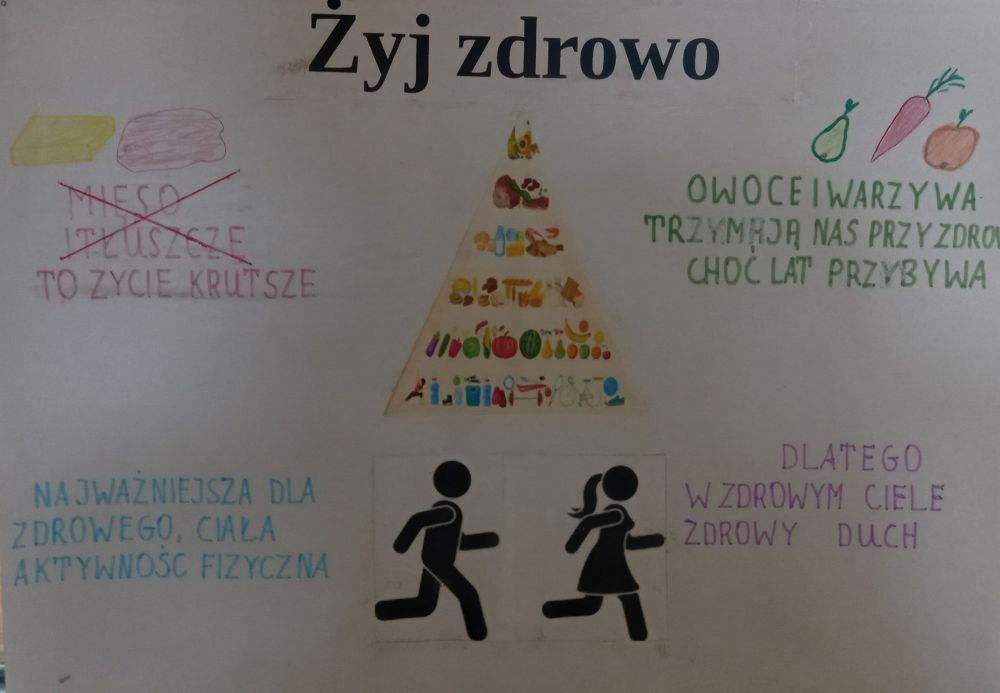 Żyj zdrowo
MIĘSO
I TŁUSZCZE
TO ZYCIE KRUTSZE
OWOCE I WARZYWA
TRZYMAJĄ NAS PRZY ZDROW
CHOĆ LAT PRZYBYWA
NAJWAŻNIEJSZA DLA
ZDROWEGO, CIAŁA
AKTYWNOŚC FIZYCZNA
DLATEGO
W ZDROWYM CIELE
ZDROWY DUCH